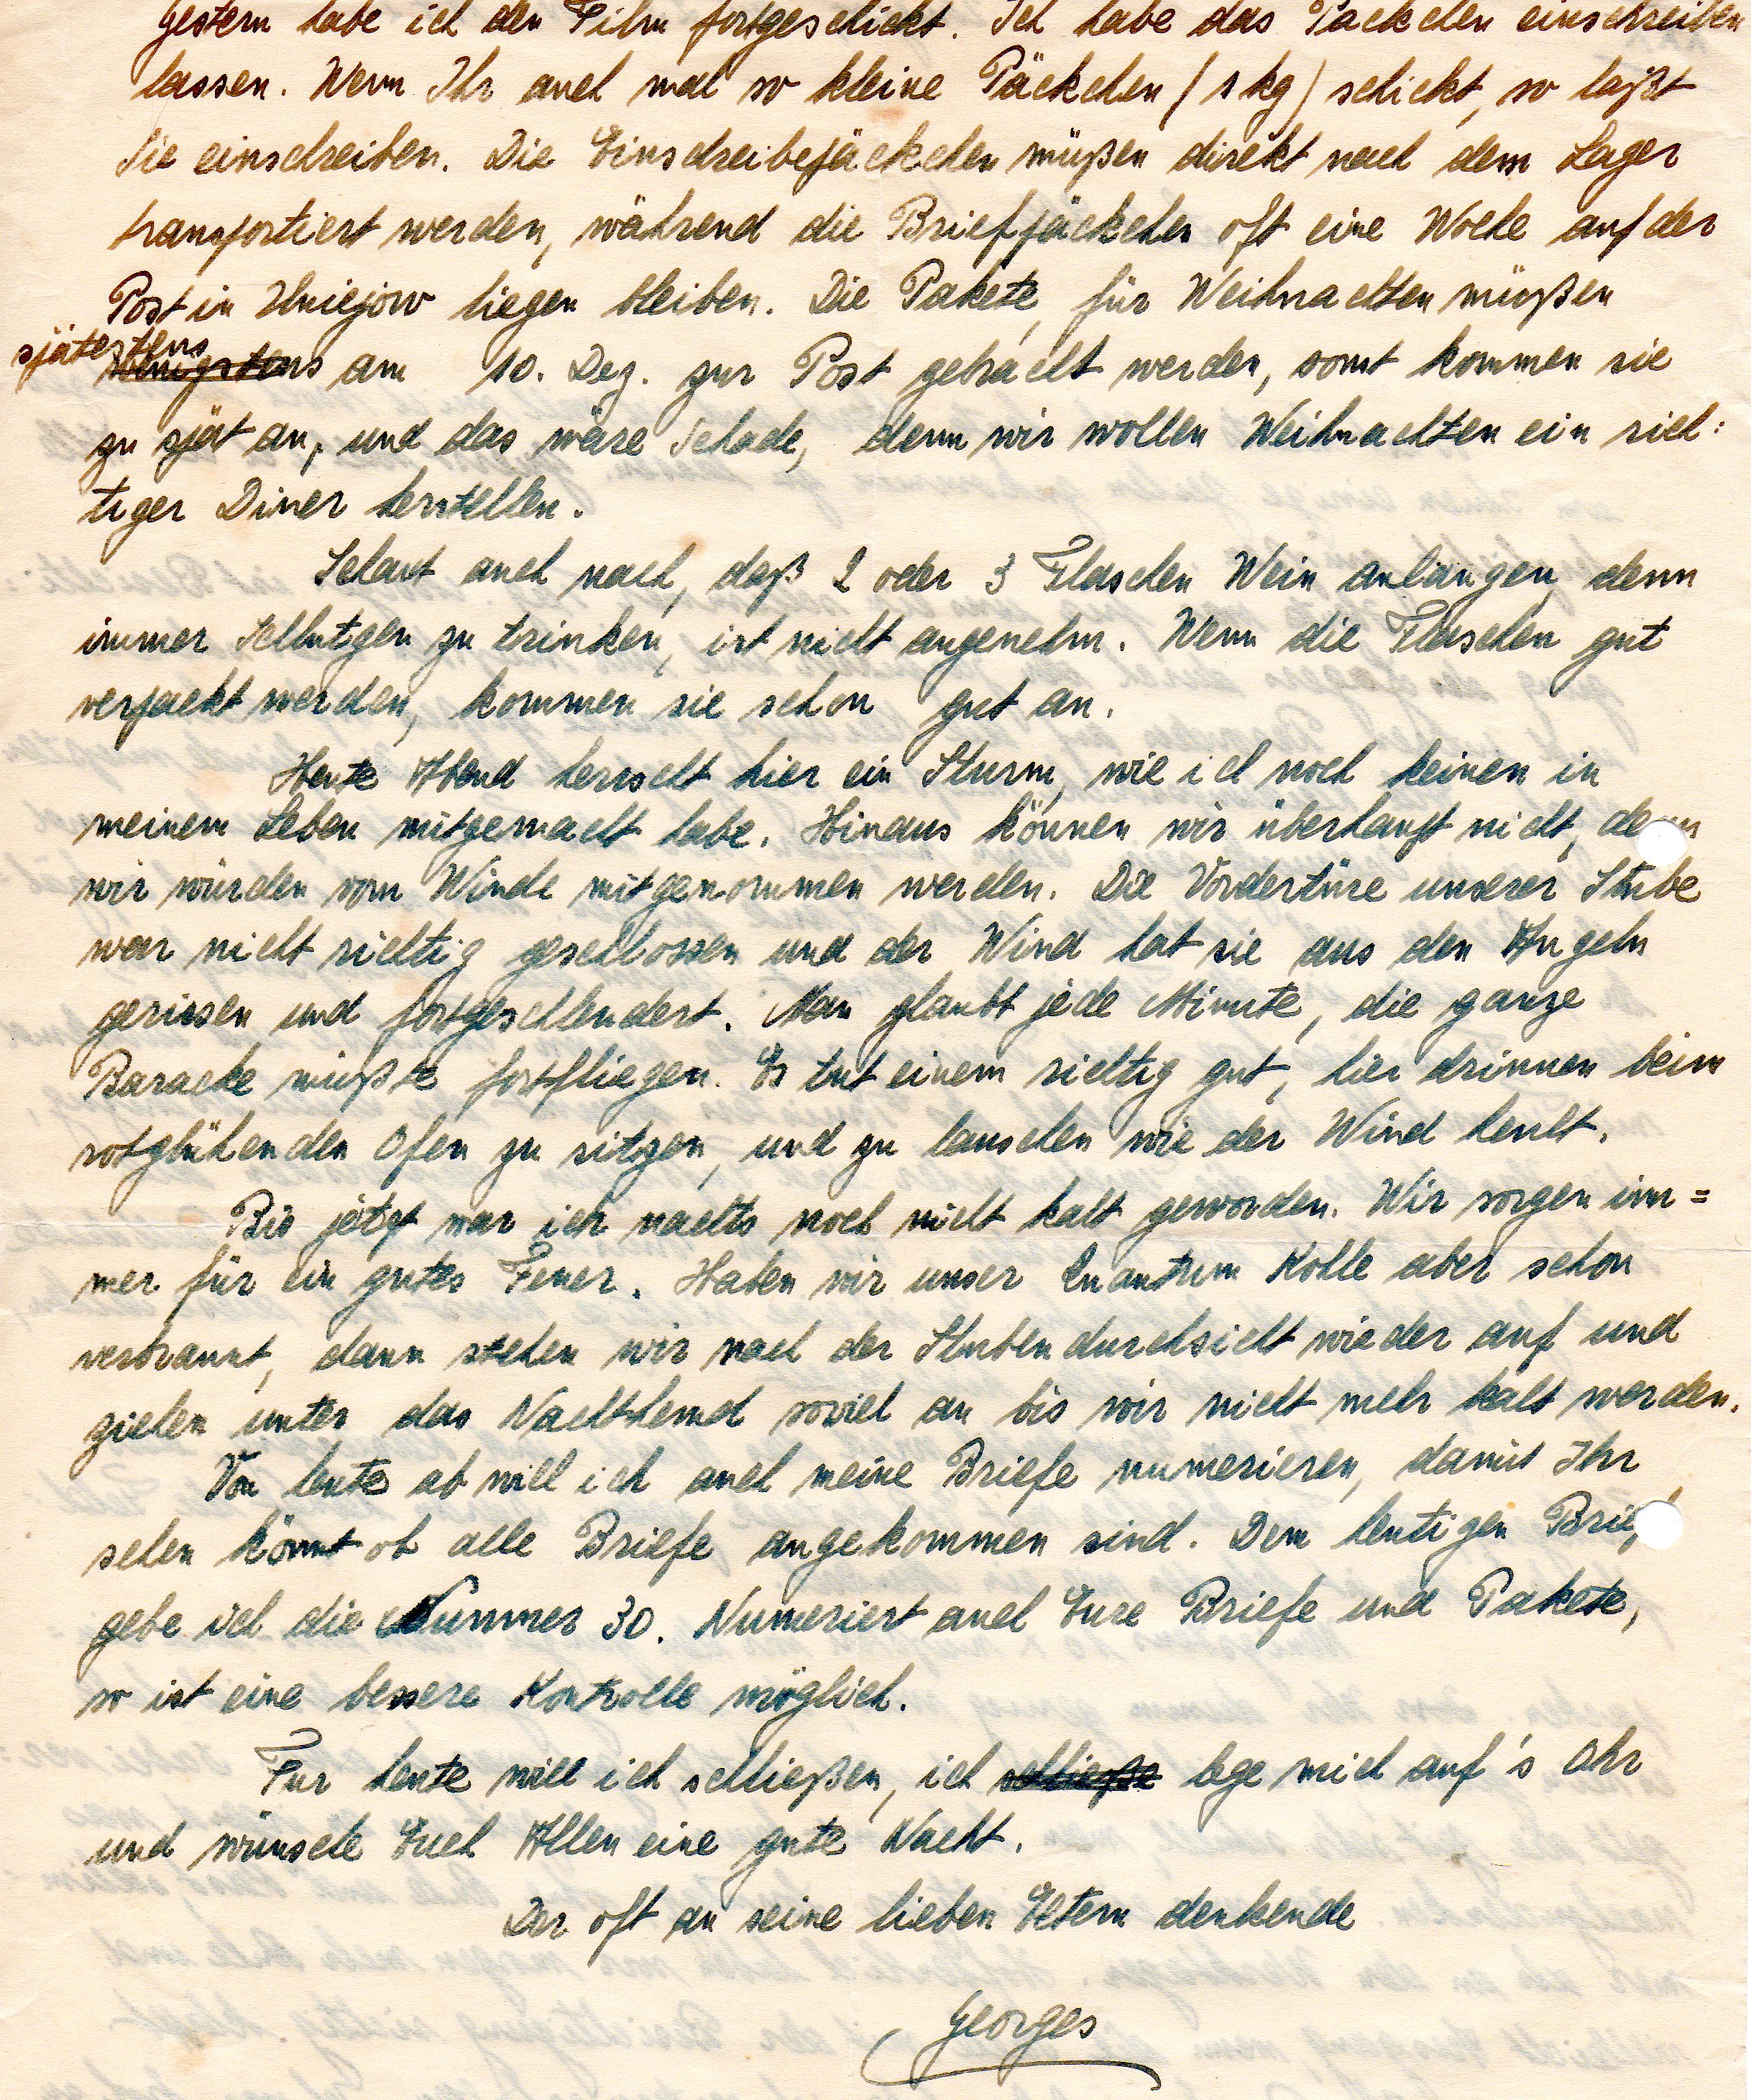 Gestern habe ich den Film fortgeschickt. Ich habe das Päckchen einschreiben
lassen. Wenn Ihr auch mal so kleine Päckchen (1 kg) schickt, so laßt
sie einschreiben. Die Einschreibepäckchen müßen direkt nach dem Lager
transportiert werden, während die Briefpäckchen oft eine Woche auf der
Post in Uniejow liegen bleiben. Die Pakete, für Weihnachten müßen
spätestens
wenigstens am 10. Dez. zur Post gebracht werden, sonst kommen sie
zu spät an, und das wäre Schade, denn wir wollen Weihnachten ein rich:
tiger Diner herstellen.
Schaut auch nach, daß 2 oder 3 Flaschen Wein anlangen, denn
immer Selbutgen zu trinken, ist nicht angenehm. Wenn die Flaschen gut
verpackt werden, kommen sie schon gut an.
Heute Abend herrscht hier ein Sturm, wie ich noch keinen in
meinem Leben mitgemacht habe. Hinaus können wir überhaupt nicht, denn
wir würden vom Winde mitgenommen werden. Die Vordertüre unserer Stube
war nicht richtig geschlossen und der Wind hat sie aus den Angeln
gerissen und fortgeschleudert. Man glaubt jede Minute, die ganze
Baracke müßte fortfliegen. Es tut einem richtig gut, hier drinnen beim
rotglühenden Ofen zu sitzen, und zu lauschen wie der Wind heult.
Bis jetzt war ich nachts noch nicht kalt geworden. Wir sorgen im=
mer für ein gutes Feuer. Haben wir unser Quantum Kohle aber schon
verbrannt, dann stehen wir nach der Stubendurchsicht wieder auf und
ziehen unter das Nachthemd soviel an bis wir nicht mehr kalt werden.
Von heute ab will ich auch meine Briefe numerieren, damit Ihr
sehen könnt ob alle Briefe angekommen sind. Dem heutigen Brief
gebe ich die Nummer 30. Numeriert auch Eure Briefe und Pakete,
so ist eine bessere Kontrolle möglich.
Fur heute will ich schließen, ich schließe lege mich auf's Ohr
und wünsche Euch Allen eine gute Nacht.
Der oft an seine lieben Eltern denkende
Georges